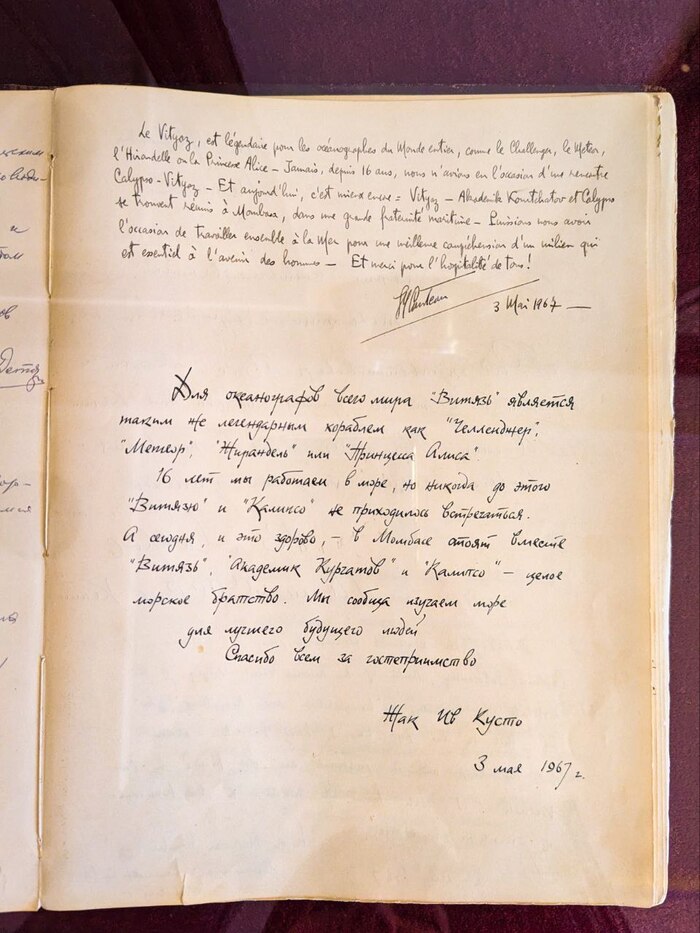 Le Vityaz, est légendaire pour les océanographes du Monde entier, comme le Challenger, le Meteor,
l'Hirondelle ou la Princesse Alice – Jamais, depuis 16 ans, nous n'avions eu l'occasion d'une rencontre
Calypso-Vityaz – Et aujourd'hui, c'est mieux encore = Vityaz – Akademik Kourtchatov et Calypso
se trouvent réunis à Mombasa, dans une grande fraternité maritime – Puissions nous avoir
l'occasion de travailler ensemble à la Mer pour une meilleure compréhension d'un milieu qui
est essentiel à l'avenir des hommes – Et merci pour l'hospitalité de tous!
3 Mai 1967 –
Для океанографов всего мира "Витязь" является
таким же легендарным кораблем как "Челленджер",
"Метеор", "Жирандель" или "Принцесса Алиса".
16 лет мы работаем в море, но никогда до этого
"Витязю" и "Калипсо" не приходилось встречаться.
А сегодня, и это здорово, – в Момбасе стоят вместе
"Витязь", "Академик Курчатов" и "Калипсо" – целое
морское братство. Мы сообща изучаем море
для лучшего будущего людей
Спасибо всем за гостеприимство
Жак Ив Кусто
3 мая 1967 г.